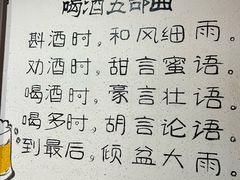 喝酒五部曲
斟酒时，和风细雨。
劝酒时，甜言蜜语。
喝酒时，豪言壮语。
喝多时，胡言论语。
到最后，倾盆大雨。